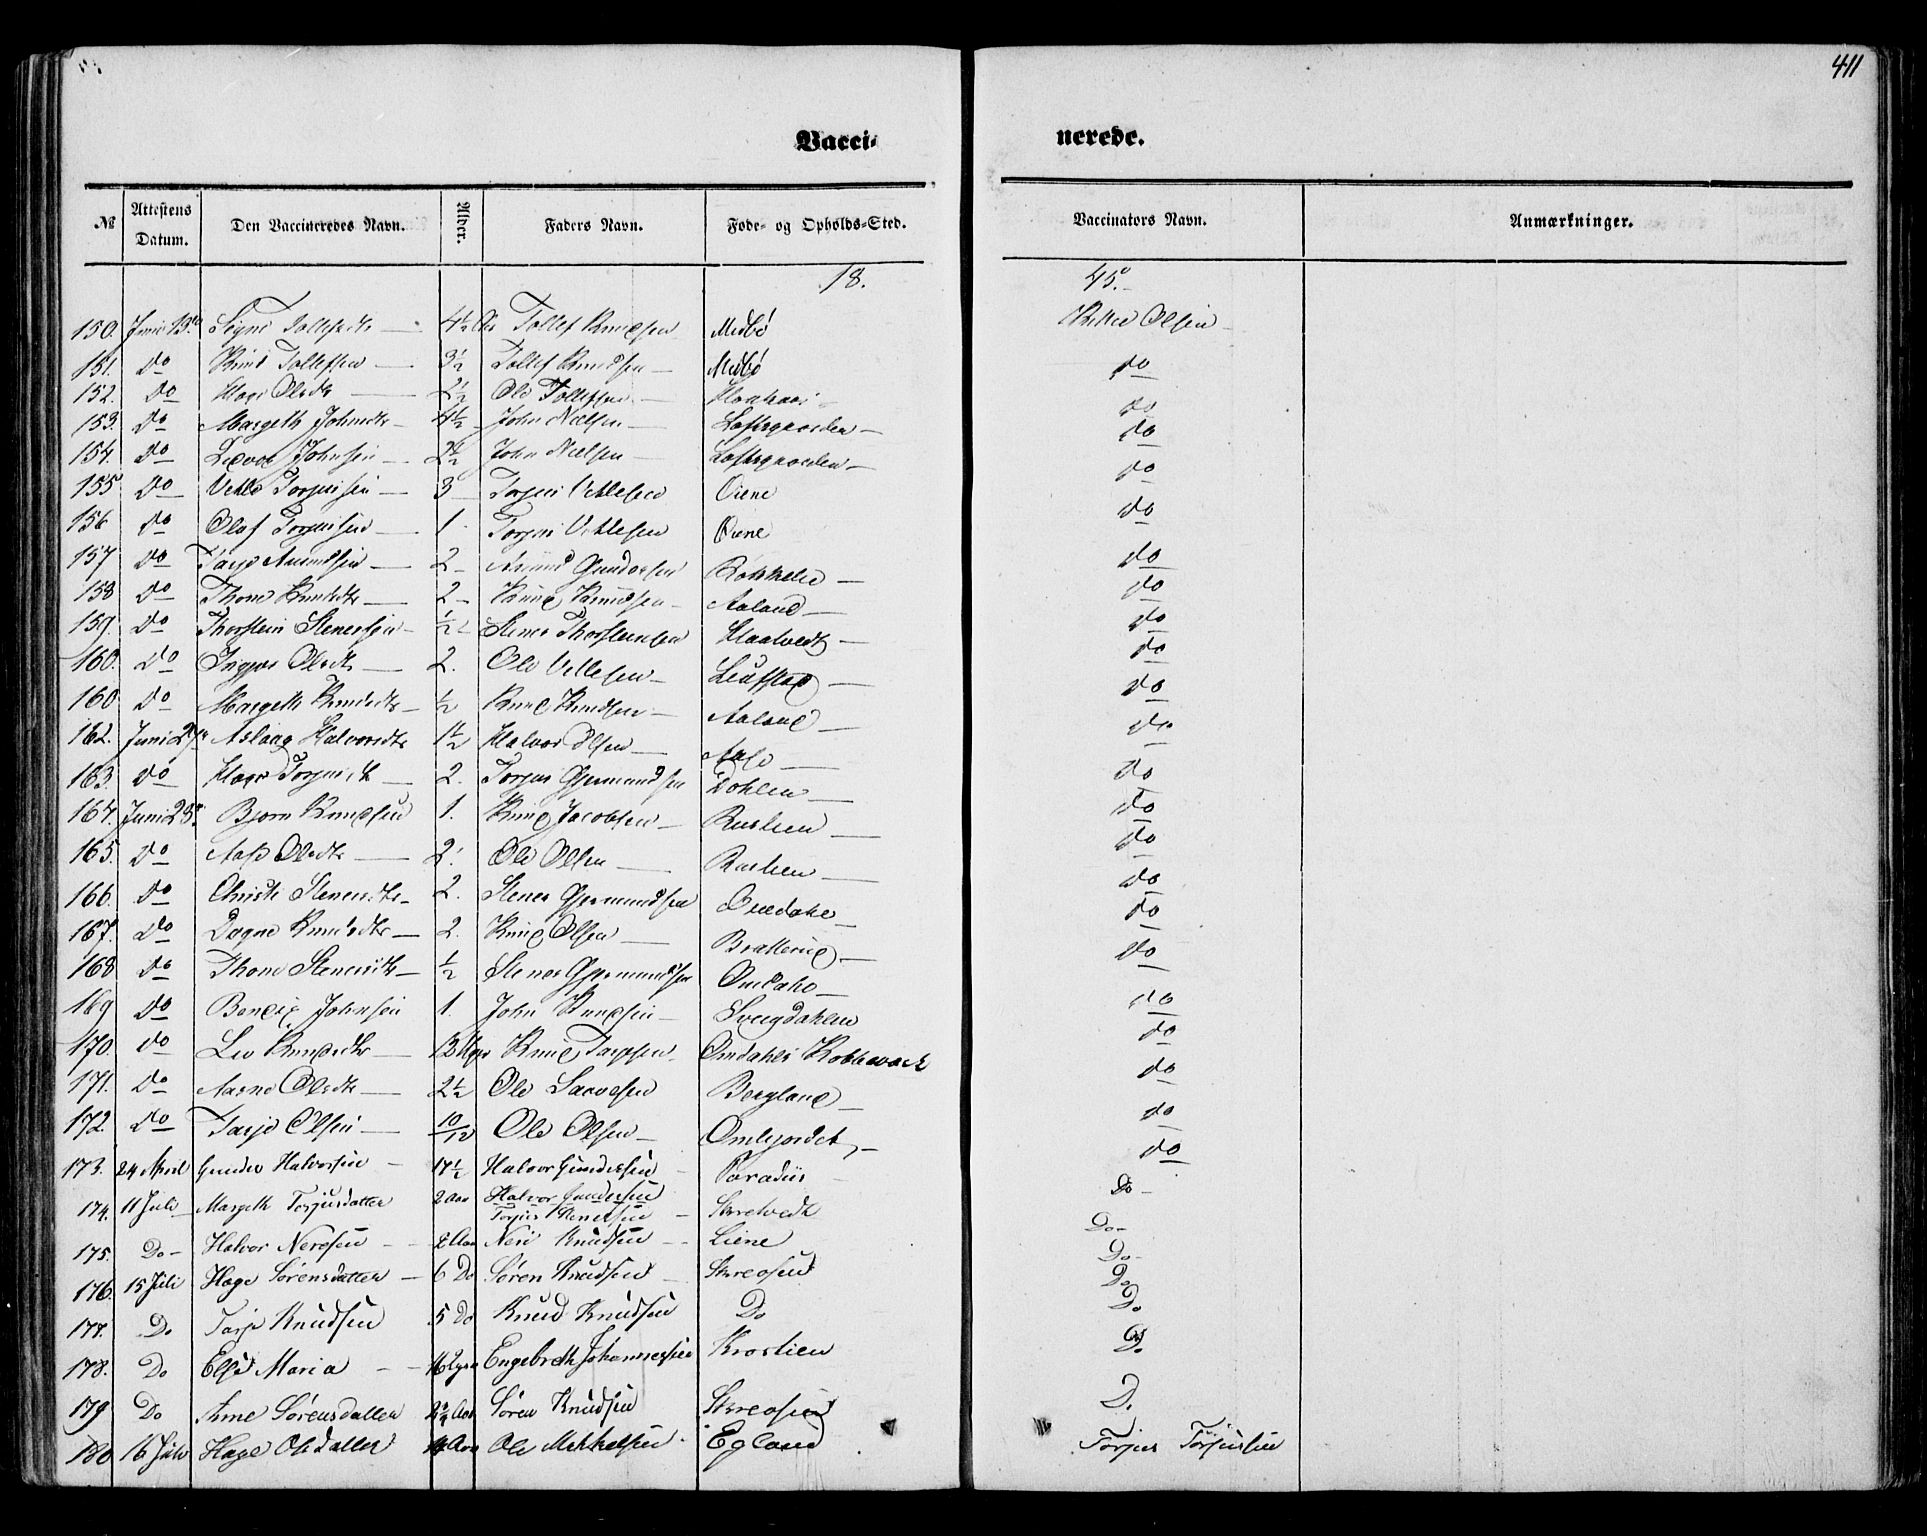 411
Vacci- nerede.
№ Attestens Datum. Den Vaccineredes Navn. Alder. Faders Navn. Føde- og Opholds-Sted. Vaccinators Navn. Anmærkninger.
18. 45.
150. Juni 13 Signe Tollefsdtr 4½ Aar Tollef Knudsen Midbø Olsen
151. do Knud Tollefsen 3½ Tollef Knudsen Midbø do
152. do Hage Olsdtr 2½ Ole Tollefsen do
153. do Margeth Johnsdtr 4½ John Nielsen Loftsgaarden do
154. do Johnsen 2½ John Nielsen Loftsgaarden do
155 do Vetle Torjusen 3 Torjus Vetlesen Øiene do
156 do Olaf Torjusen 1. Torjus Vetlesen Øiene do
157 do Tarje Aamundsen 2 Gundersen do
158 do Thone Knudsdtr 2 Knud Knudsen Aaland do
159. do Thorstein Stenersen ½ Stener Thorsteinsen Haatvedt do
160. do Olsdtr 2. Ole Vetlesen do
160. do Margeth Knudsdtr ½ Knud Knudsen Aaland do
162. Juni 27 Aslaug Halvorsdtr 1½ Halvor Olsen do
163. do Hage Torjusdtr 2. Torjus Gjermundsen Dohlen do
164. Juni 28. Bjørn Knudsen 1. Knud Jacobsen do
165. do Aase Olsdtr 2. Ole Olsen do
166. do Christi Stenersdtr 2. Stener Gjermundsen Omdahl do
167. do Dagne Knudsdtr 2. Knud Olsen do
168 do Thone Stenersdtr ½ Stener Gjermundsen Omdahl do
169 do Bendix Johnsen 1. John Knudsen Svengdahlen do
170. do Liv Knudsdtr Knud Tarjesen Omdahls Kobberværk do
171. do Aasne Olsdtr 2½ Ole Saavesen Bergland do
172. do Tarje Olsen 10/12 Ole Olsen Omljordet do
173. 24 April Gunder Halvorsen 17½ Halvor Gundersen Paradiis Do
174. 11 Juli Margeth Torjusdatter 2 Aar Halvor Gundersen
Torjus Stenersen Do
175. Do Halvor Nerisen 2 Aar Neri Knudsen Liene Do
176. 15 Juli Hage Sørensdatter 6 Do Søren Knudsen Storeosen Do
177. Do Tarje Knudsen 5 Do Knud Knudsen Do Do
178. Do Else Maria 16 Ugen Engebreth Johannessen Kroslien Do
179 Do Anne Sørensdatter Aar Søren Knudsen Storeosen D.
180 16 Juli Hage Olsdatter Aar Ole Mikkelsen Egland Torjus Torjussen